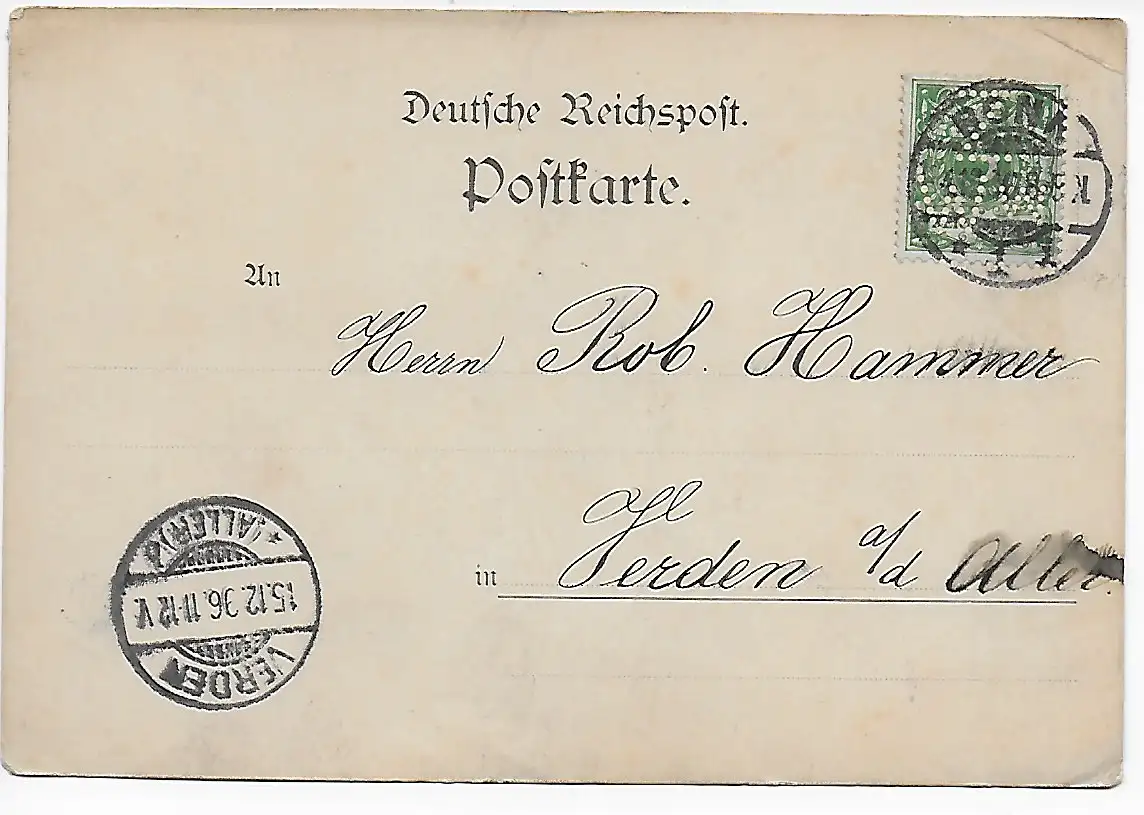 Deutsche Reichspost.
Postkarte.
BONN
1
An
Herrn Rob. Hammer
in Verden a/d Aller.
VERDEN
15.12.96. 11-12 V.
* (ALLER) *